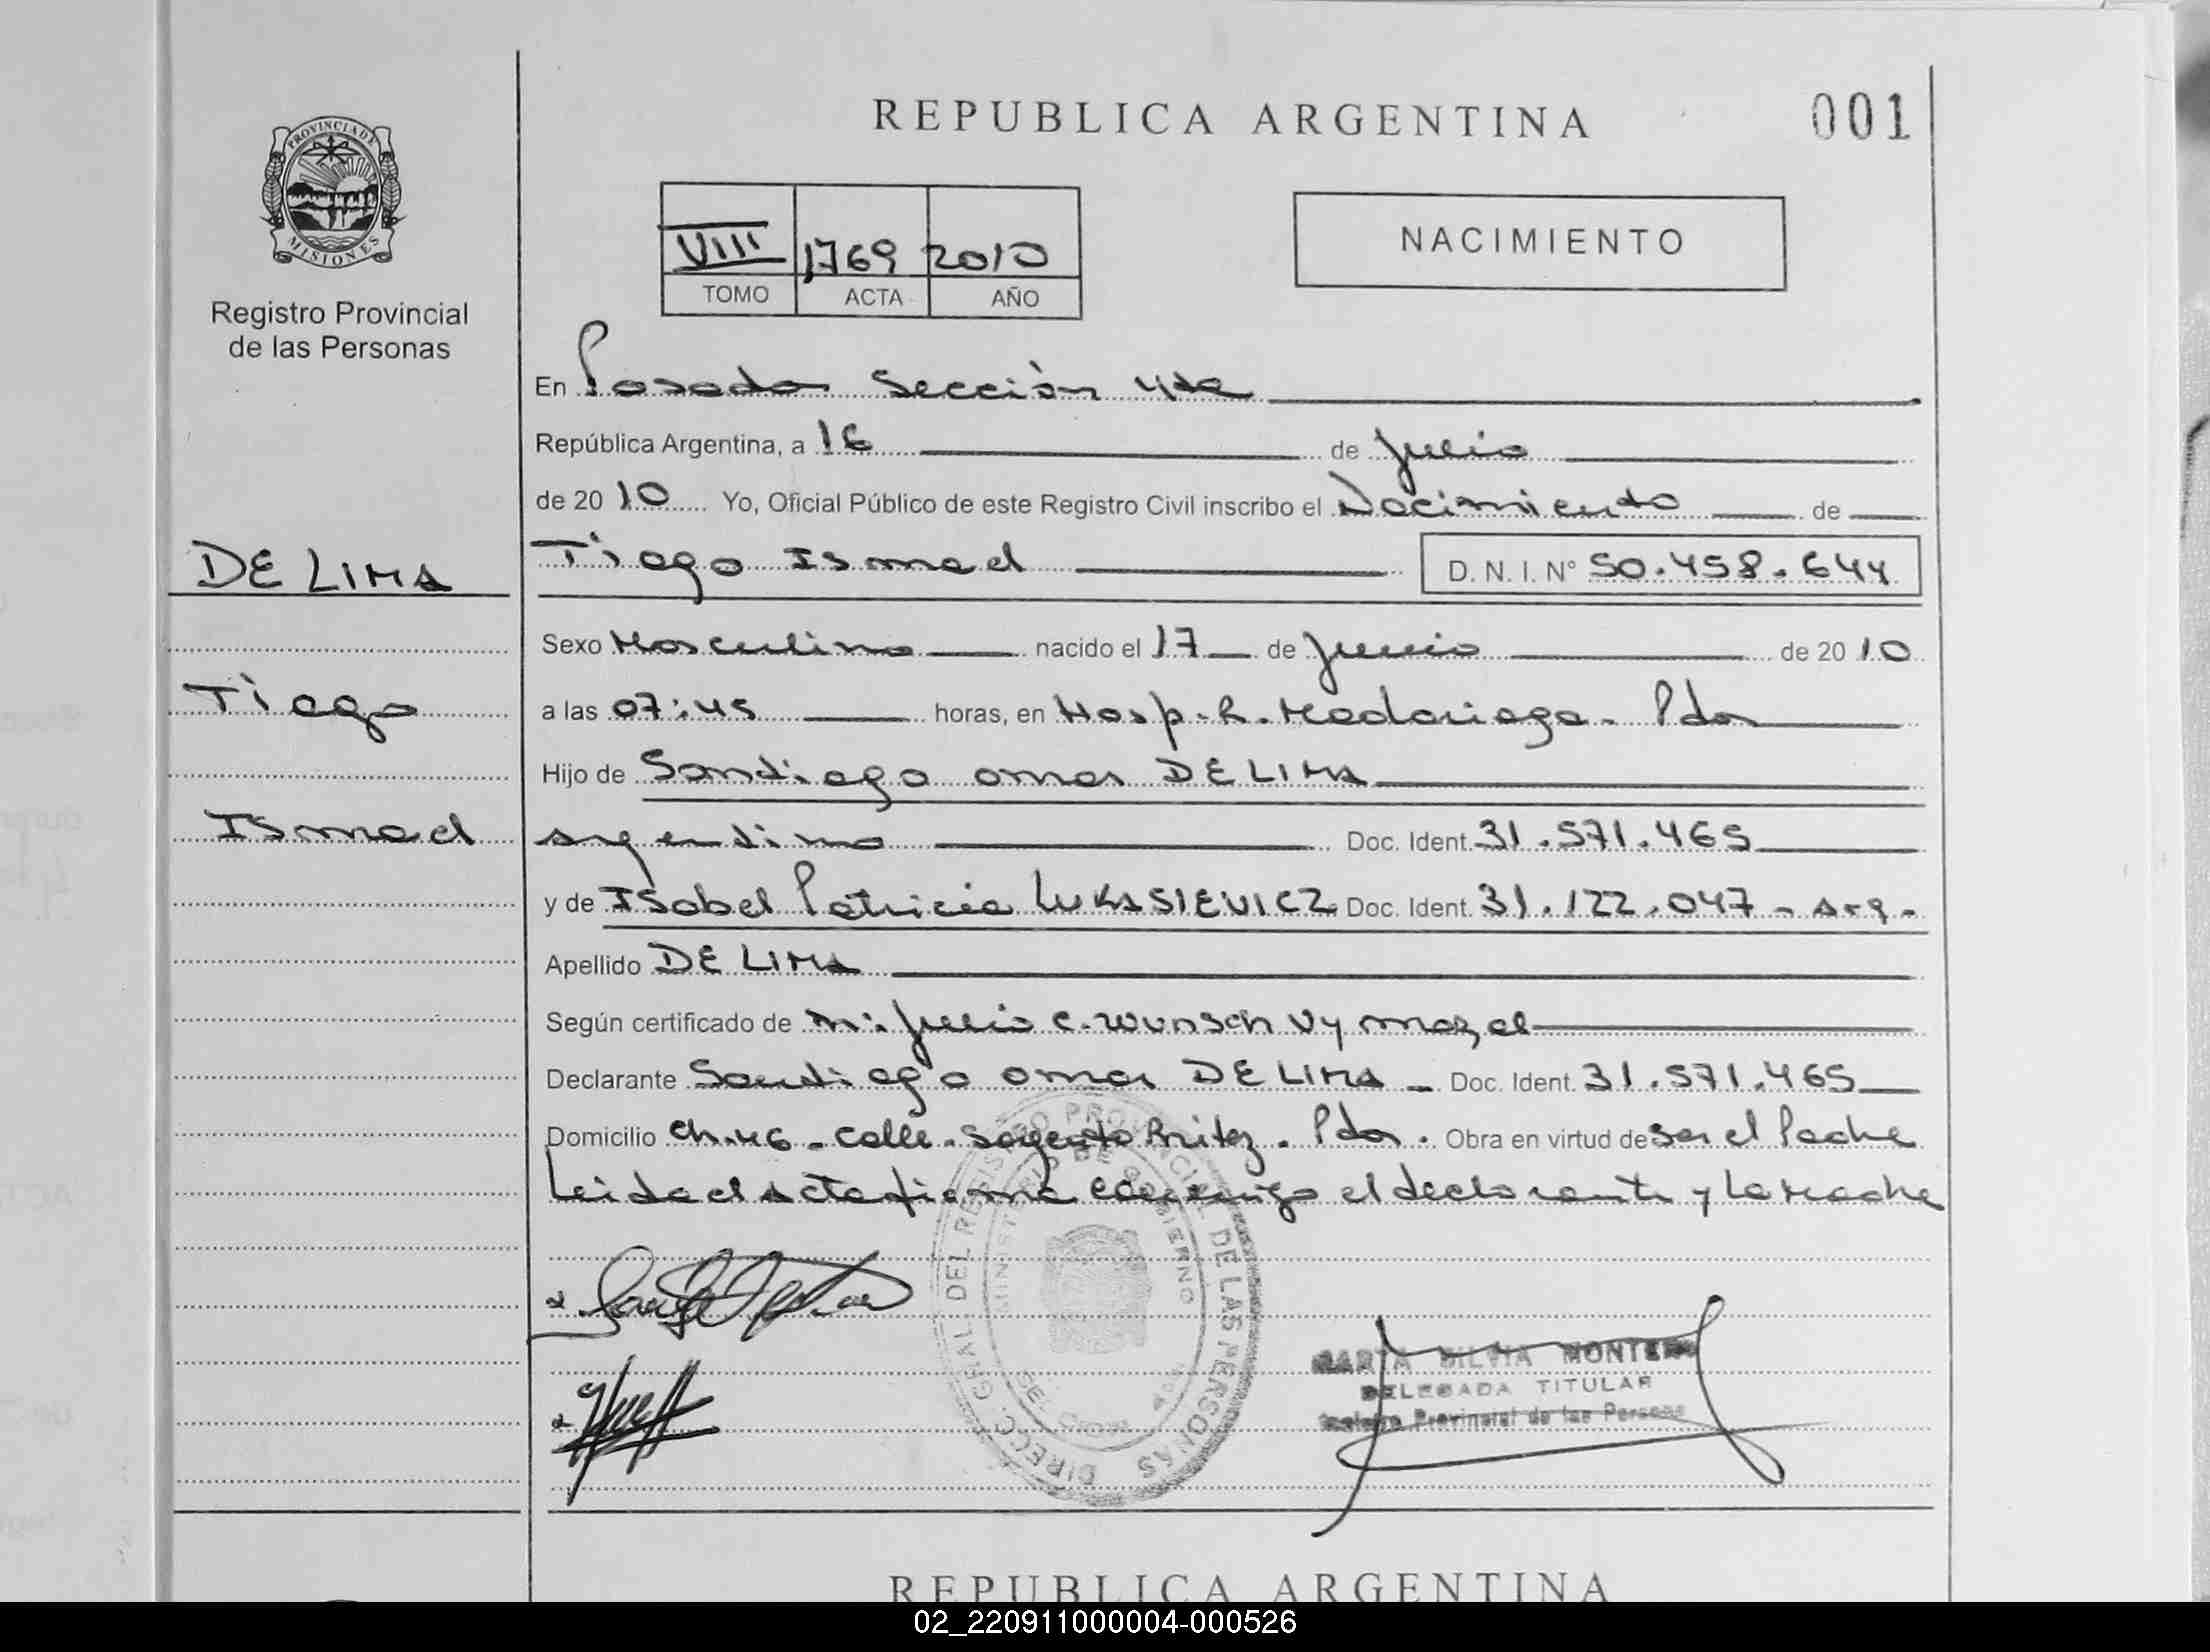 REPUBLICA ARGENTINA
001
PROVINCIA DE
MISIONES
Registro Provincial
de las Personas
VIII 1769 2010
TOMO ACTA AÑO
NACIMIENTO
En Posadas Sección 4ta
República Argentina, a 16 de Julio
de 2010 Yo, Oficial Público de este Registro Civil inscribo el Nacimiento de
DE LIMA
Tiago Ismael D. N. I. N° 50.458.644
Sexo Masculino nacido el 17 de Junio de 2010
Tiago
a las 07:45 horas, en Hosp. R. Madariaga. Pdas
Hijo de Santiago Omar DE LIMA
Ismael
argentino Doc. Ident. 31.571.465
y de Isabel Patricia LUKASIEVICZ Doc. Ident. 31.122.047 - Arg -
Apellido DE LIMA
Según certificado de Julio C. Wunsch Vymazal
Declarante Santiago Omar DE LIMA - Doc. Ident. 31.571.465
Domicilio Ch. 46 - Calle. Sargento Britez. Pdas. Obra en virtud de ser el Padre
Leida el Acta firma conmigo el declarante y La Madre
DIRECC. GRAL. DEL REGISTRO PROVINCIAL DE LAS PERSONAS
MINISTERIO DE GOBIERNO
MARTA SILVIA MONTERO
DELEGADA TITULAR
Registro Provincial de las Personas
REPUBLICA ARGENTINA
02_220911000004-000526